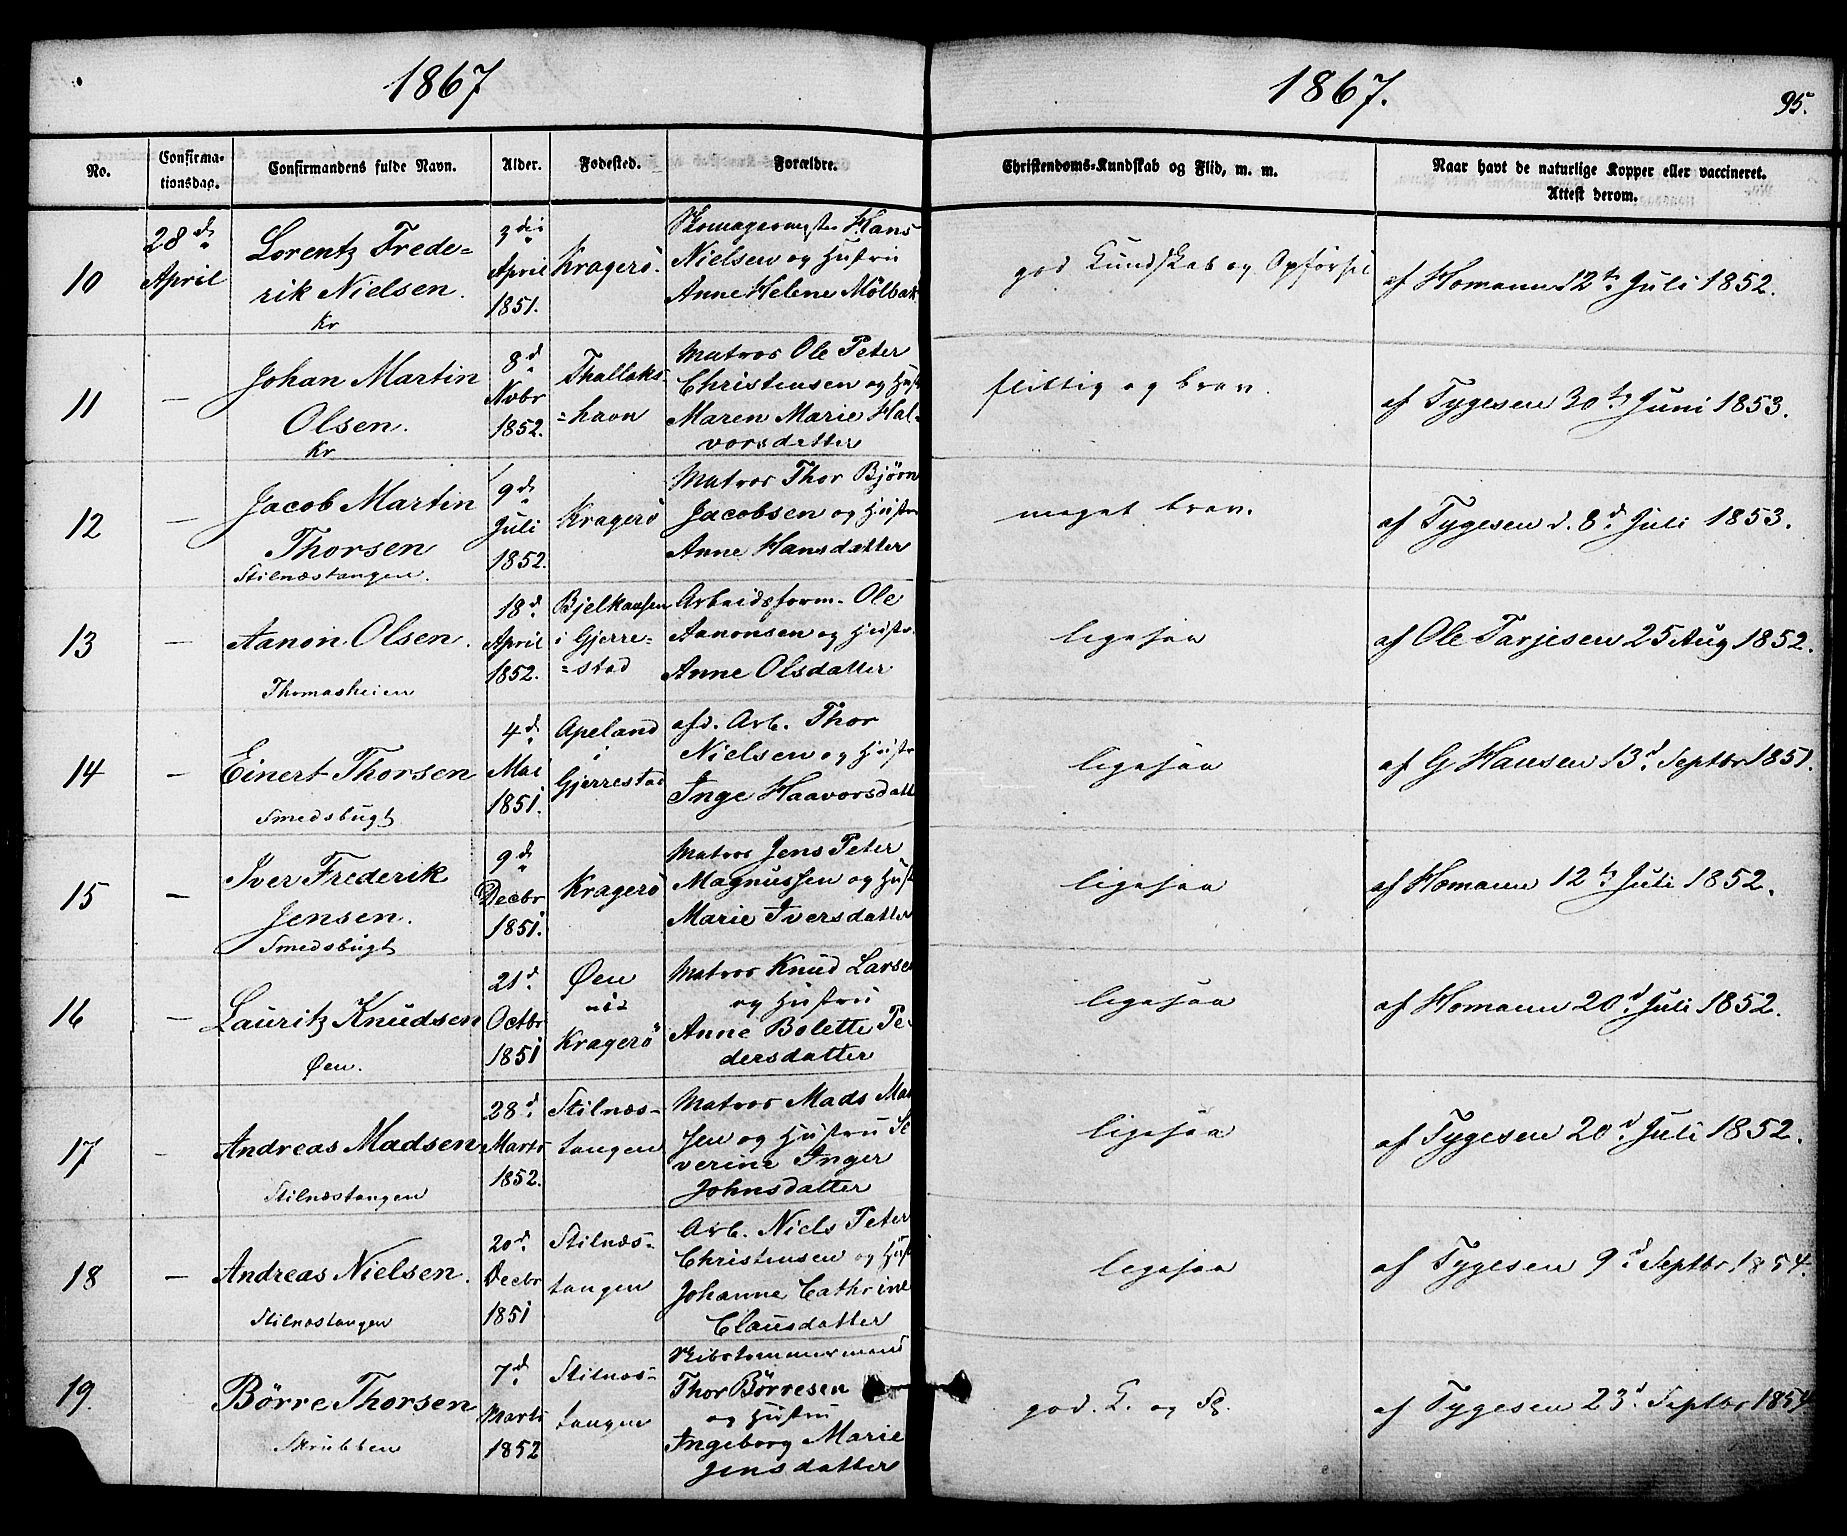 1867
1867.
95.
No.
Confirma-
tionsdag.
Confirmandens fulde Navn.
Alder.
Fødested.
Forældre.
Christendoms-Kundskab og Flid, m. m.
Naar havt de naturlige Kopper eller vaccineret.
Attest derom.
10
28de
April
Lorentz Frede-
rik Nielsen.
Kr
3die
April
1851.
Kragerö.
Skomagermester Hans
Nielsen og Hustru
Anne Helene Mölbak
god Kundskab og Opförsel
af Homann 12te Juli 1852.
11
—
Johan Martin
Olsen.
Kr
8d.
Nvbr
1852.
Thalloks-
=havn
Matros Ole Peter
Christensen og Hust
Maren Marie Hal-
vorsdatter
flittig og brav.
af Tygesen 30te Juni 1853.
12
—
Jacob Martin
Thorsen
Stilnæstangen.
9de
Juli
1852.
Kragerö
Matros Thor Bjørn
Jacobsen og Hustr
Anne Hansdatter
meget brav.
af Tygesen d. 8d. Juli 1853.
13
—
Aanon Olsen.
Thomasheien
18d.
April
1852.
Bjelkaasen
i Gjerre-
=stad
Arbeidsform. Ole
Aanonsen og Hustr.
Anne Olsdatter
ligesaa
af Ole Tarjesen 25 Aug 1852.
14
—
Einert Thorsen
Smedsbugt
4d.
Mai
1851.
Apeland
i
Gjerrestad
afd. Arb. Thor
Nielsen og Hustr
Inge Haavorsdatt
ligesaa
af G Hansen 13d. Septbr 1851.
15
—
Iver Frederik
Jensen.
Smedsbugt
9de
Decbr
1851.
Kragerö
Matros Jens Peter
Magnussen og Hust
Marie Iversdatter
ligesaa
af Homann 12te Juli 1852.
16
—
Lauritz Knudsen
Øen.
21d.
Octbr
1851
Øen
vid
Kragerö
Matros Knud Larse
og Hustru
Anne Bolette Pe-
dersdatter
ligesaa
af Homann 20d. Juli 1852.
17
—
Andreas Madsen
Stilnæstangen
28d.
Marts
1852.
Stilnæs-
tangen
Matros Mads Mad
sen og Hustru Se
verine Inger
Johnsdatter
ligesaa
af Tygesen 20d. Juli 1852.
18
—
Andreas Nielsen.
Stilnæstangen
20d.
Decbr
1851
Stilnæs-
tangen
Arb. Niels Peter
Christensen og Hust
Johanne Cathrine
Clausdatter
ligesaa
af Tygesen 9d. Septbr 1854.
19.
Börre Thorsen
Skrubben
7d.
Marts
1852
Stilnæs-
tangen
Skibstømmermand
Thor Börresen
og Hustru
Ingeborg Marie
Jensdatter
god. K. og Fl.
af Tygesen 23d. Septbr 1854